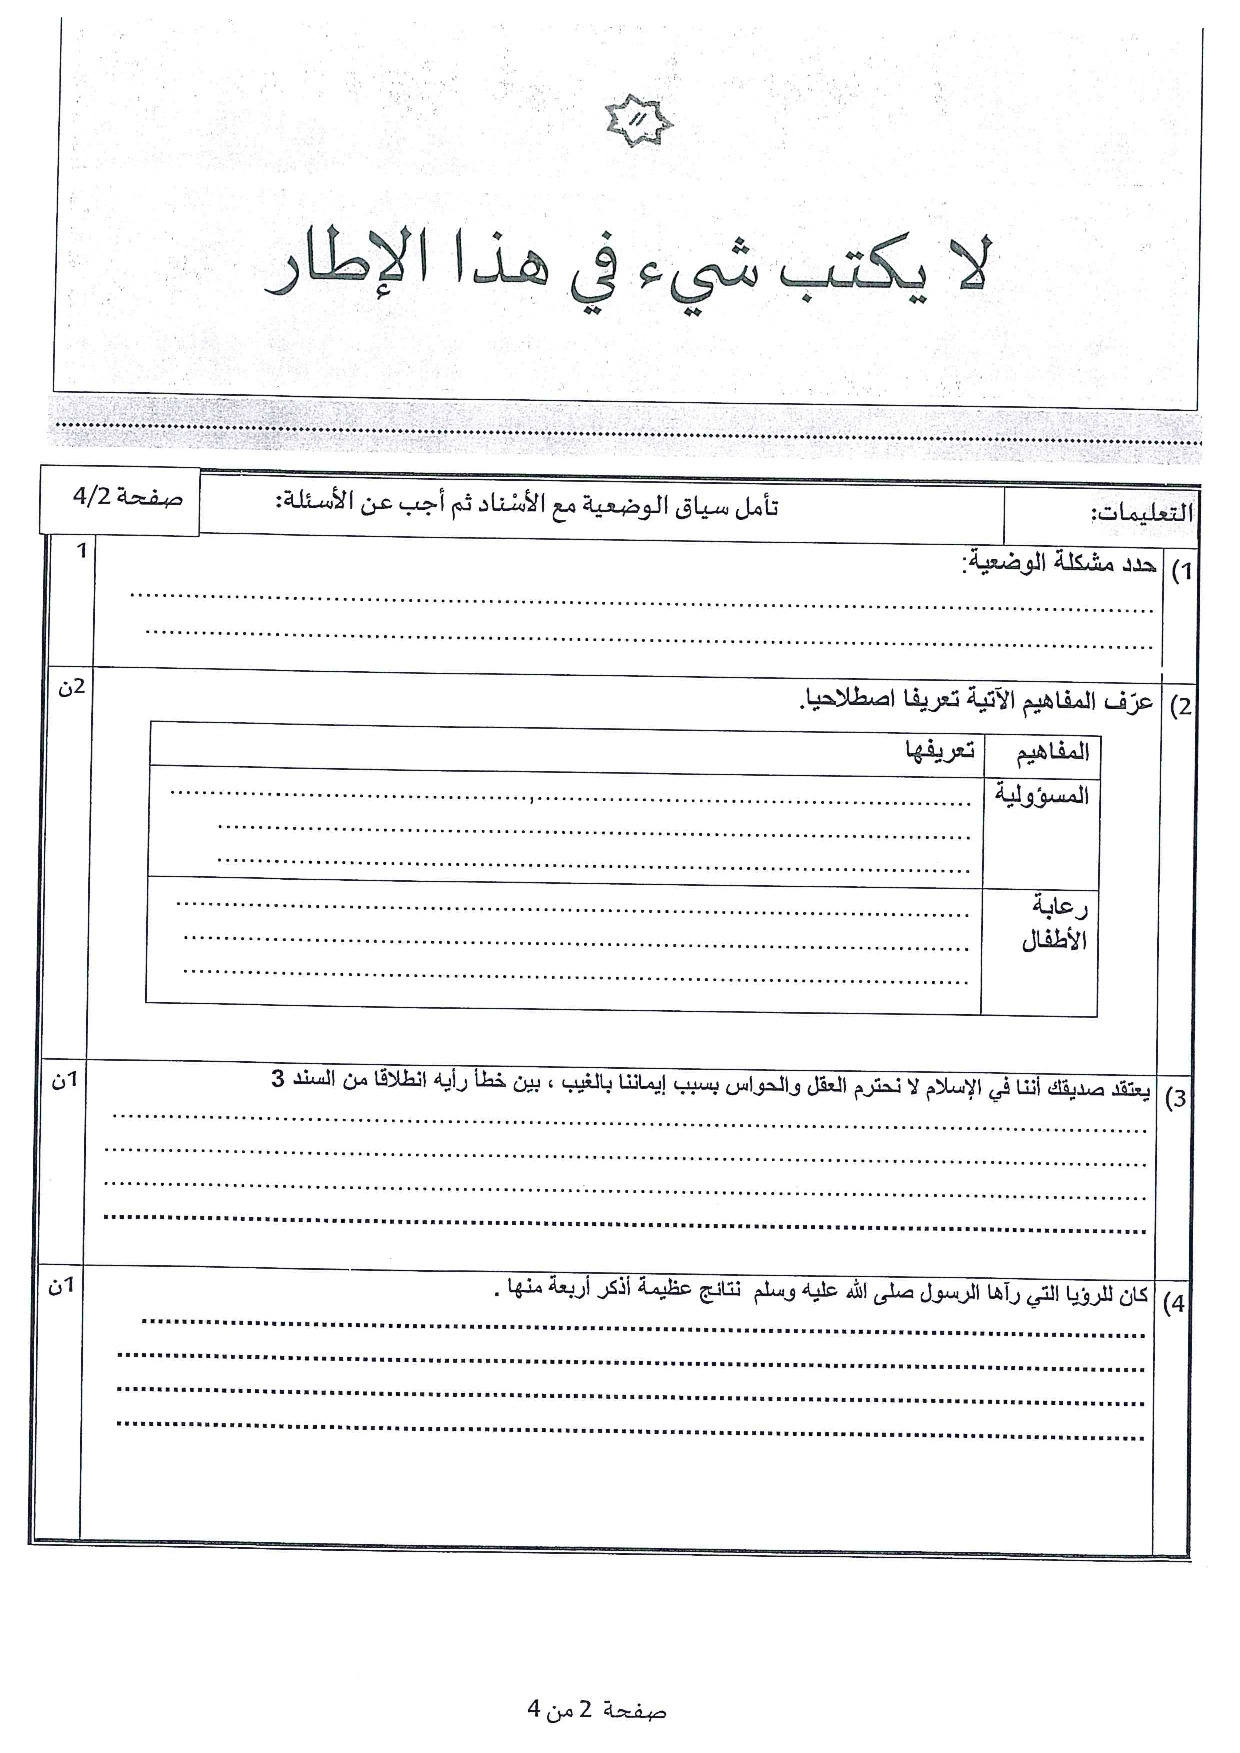 لا يكتب شيء في هذا الإطار
التعليمات:
تأمل سياق الوضعية مع الأسْناد ثم أجب عن الأسئلة:
صفحة 4/2
1) حدد مشكلة الوضعية:
1
2) عرّف المفاهيم الآتية تعريفا اصطلاحيا.
2ن
المفاهيم
تعريفها
المسؤولية
رعاية
الأطفال
3) يعتقد صديقك أننا في الإسلام لا نحترم العقل والحواس بسبب إيماننا بالغيب ، بين خطأ رأيه انطلاقا من السند 3
1ن
4) كان للرؤيا التي رآها الرسول صلى الله عليه وسلم نتائج عظيمة أذكر أربعة منها .
1ن
صفحة 2 من 4